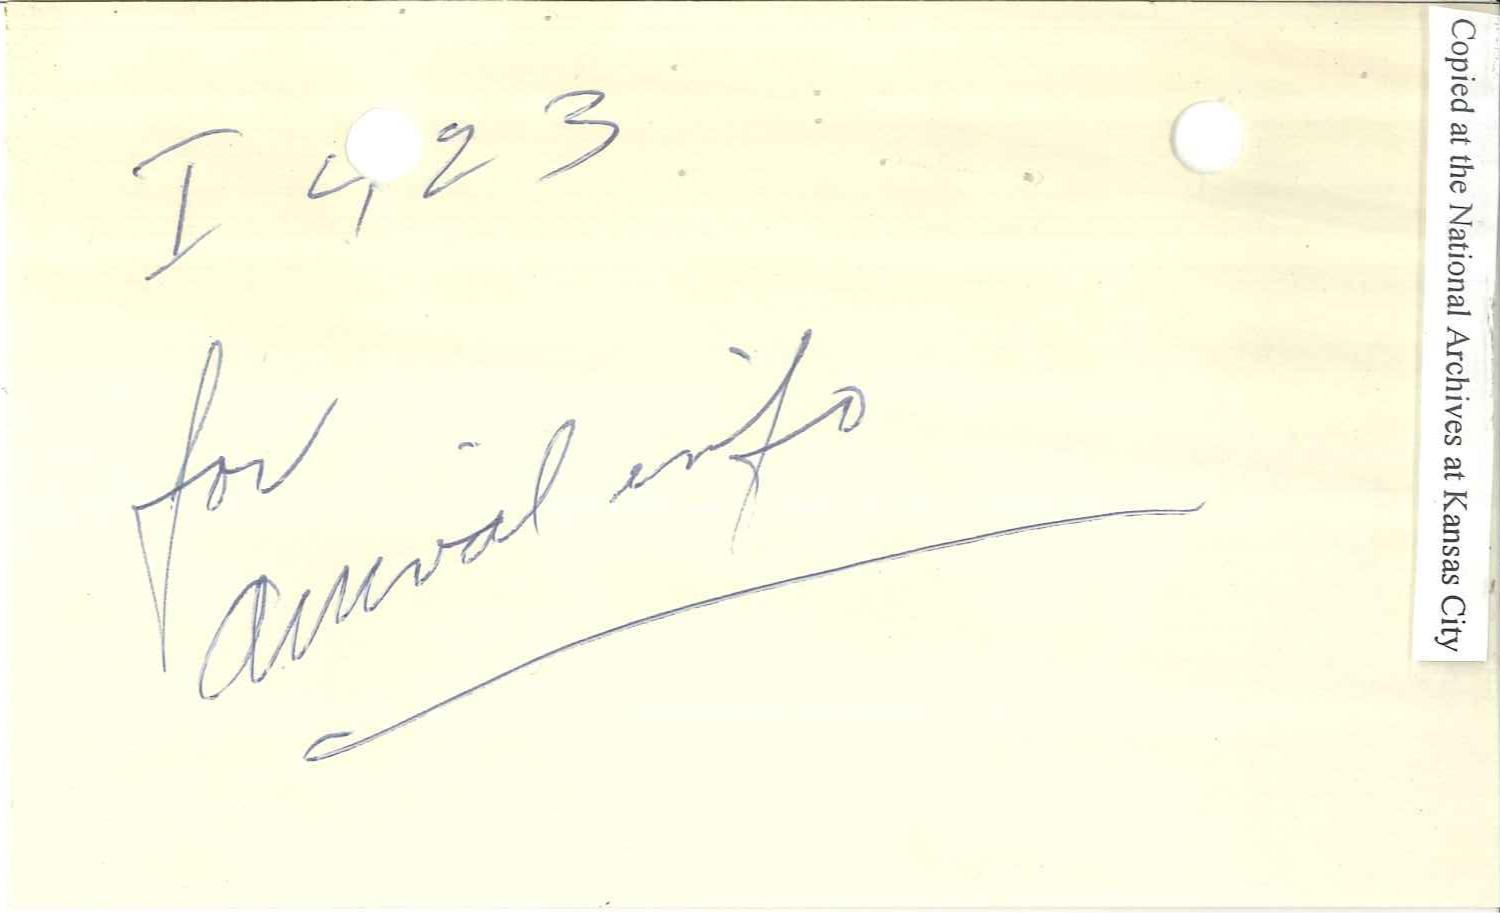 I 423
for
arrival info
Copied at the National Archives at Kansas City